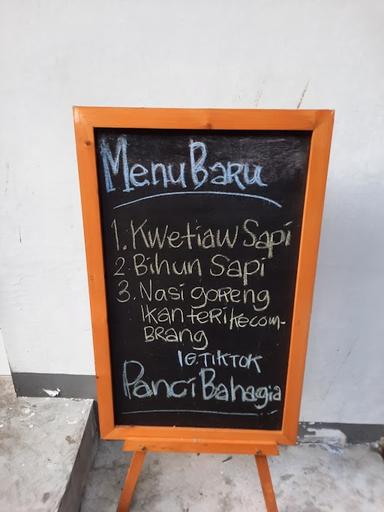 Menu Baru
1. Kwetiaw Sapi
2. Bihun Sapi
3. Nasi goreng
Ikan teri kecom-
BRang
IG.TIKTOK
Panci Bahagia